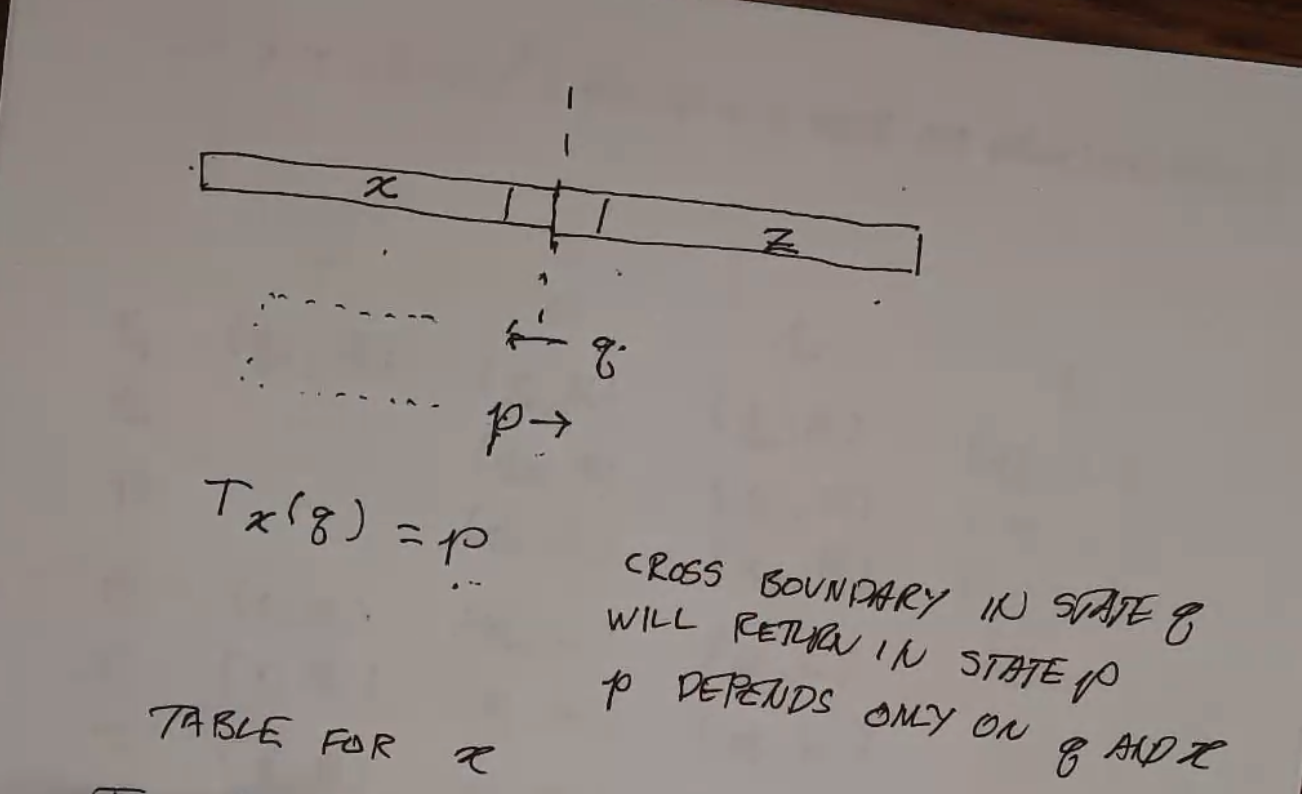 x
z
← q
p →
Tx(q) = p
CROSS BOUNDARY IN STATE q
WILL RETURN IN STATE p
p DEPENDS ONLY ON q AND x
TABLE FOR x